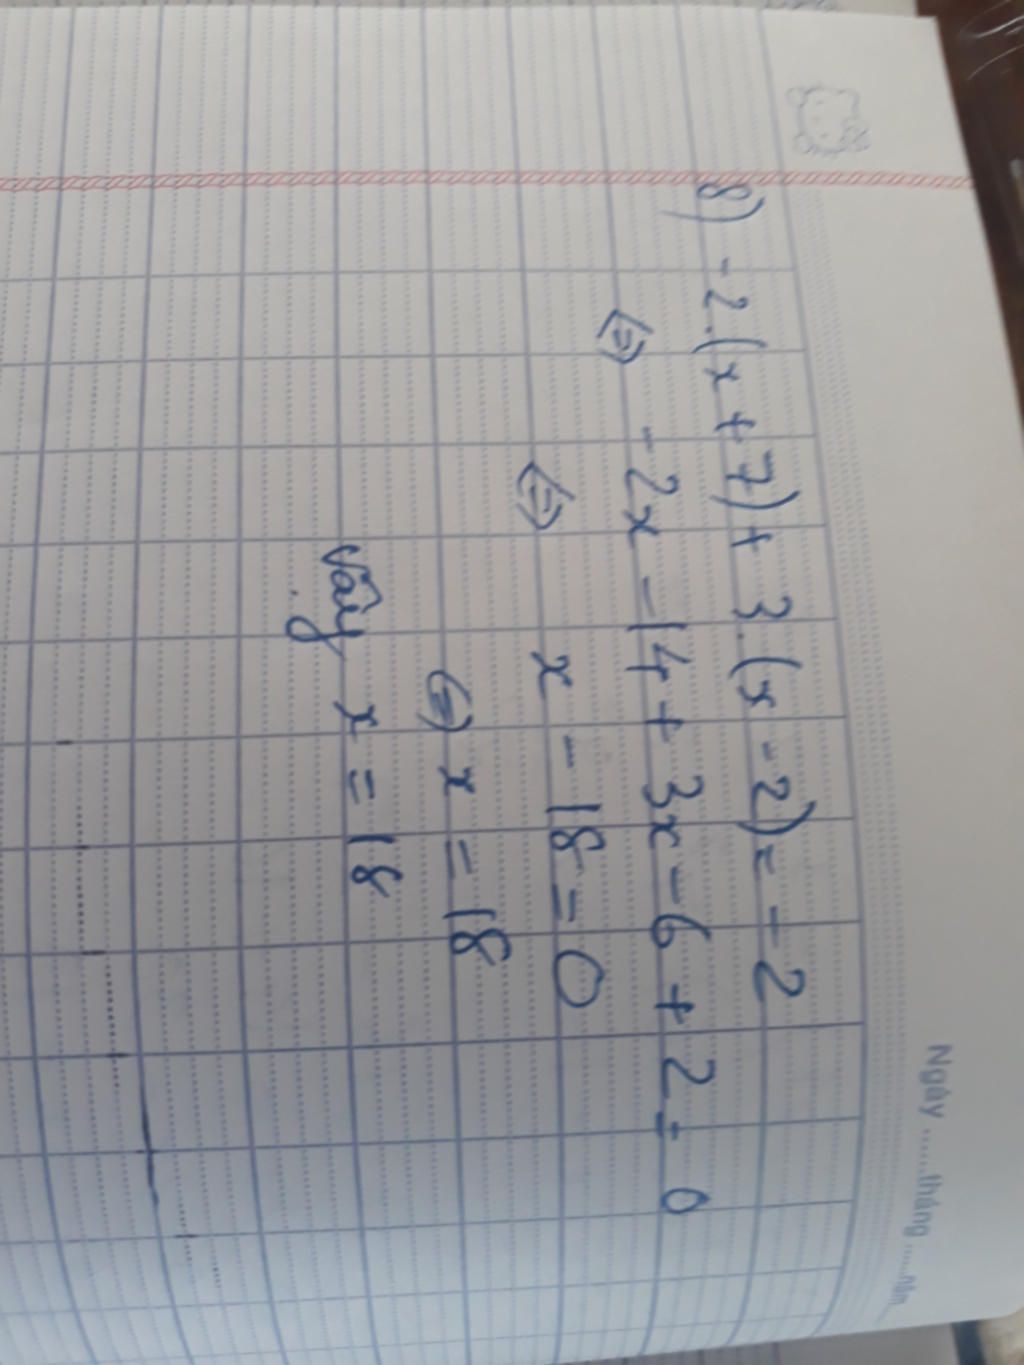 Ngày ...... tháng ...... năm
8) -2.(x + 7) + 3.(x - 2) = -2
<=> -2x - 14 + 3x - 6 + 2 = 0
<=> x - 18 = 0
<=> x = 18
Vậy x = 18